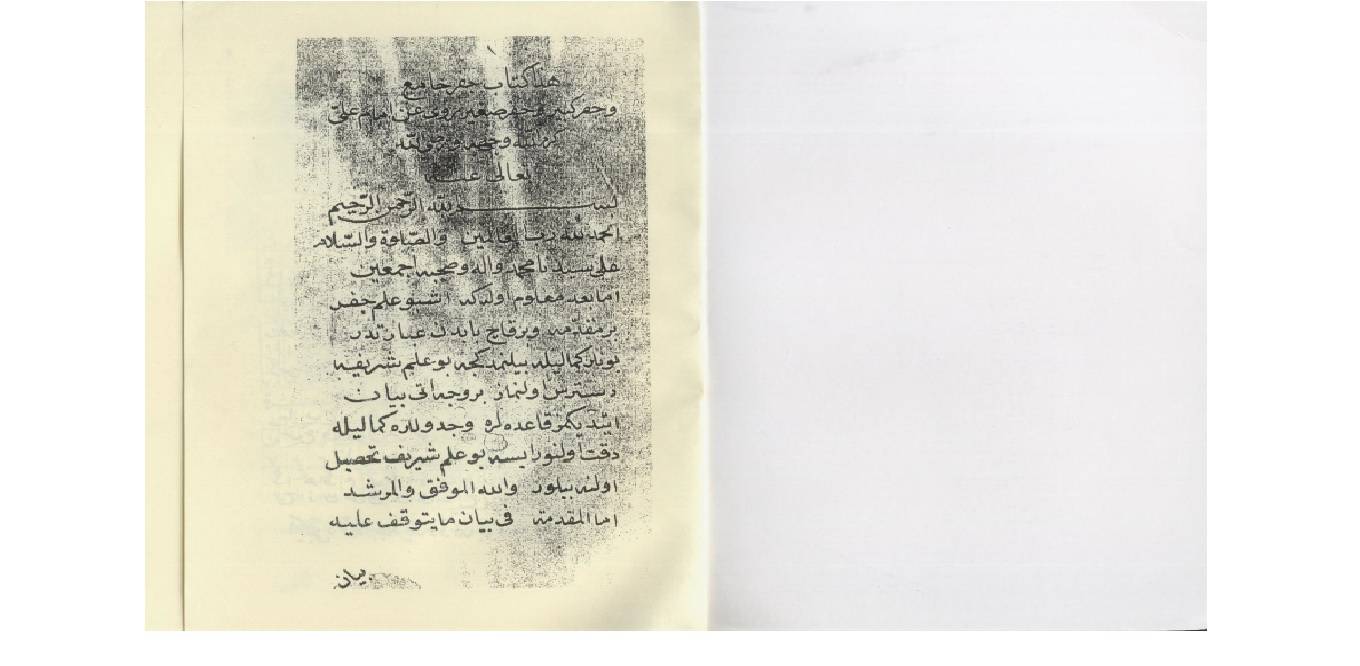 ١
هذا كتاب جفر جامع
وجفر كبير وجفر صغير مروى عن امام على
كرم الله وجهه ورضى الله
تعالى عنه
بسم الله الرّحمن الرّحيم
الحمد لله رب العالمين والصّلوة والسّلام
على سيدنا محمد واله وصحبه اجمعين
اما بعد معلوم اوله كه اشبو علم جفر
بر مقدّمه وبرقاچ بابدن عبارتدر
بونلر كماليله بيلنمدكجه بو علم شريفه
دسترس اولنماز بر وجه اتى بيان
ايتديكمز قاعده لره وجدولره كماليله
دقت اولنور ايسه بو علم شريف تحصيل
اولنه بيلور والله الموفق والمرشد
اما المقدمة فى بيان ما يتوقف عليه
بيان